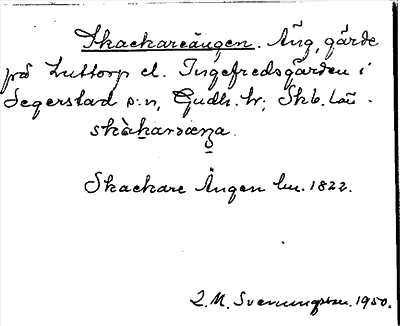 Skackareängen. Äng, gärde
på Luttorp el. Ingefredsgården i
Segerstad s:n, Gudh. hr; Skb. län.
Skackare Ängen lm. 1822.
L. M. Svenungsson. 1950.